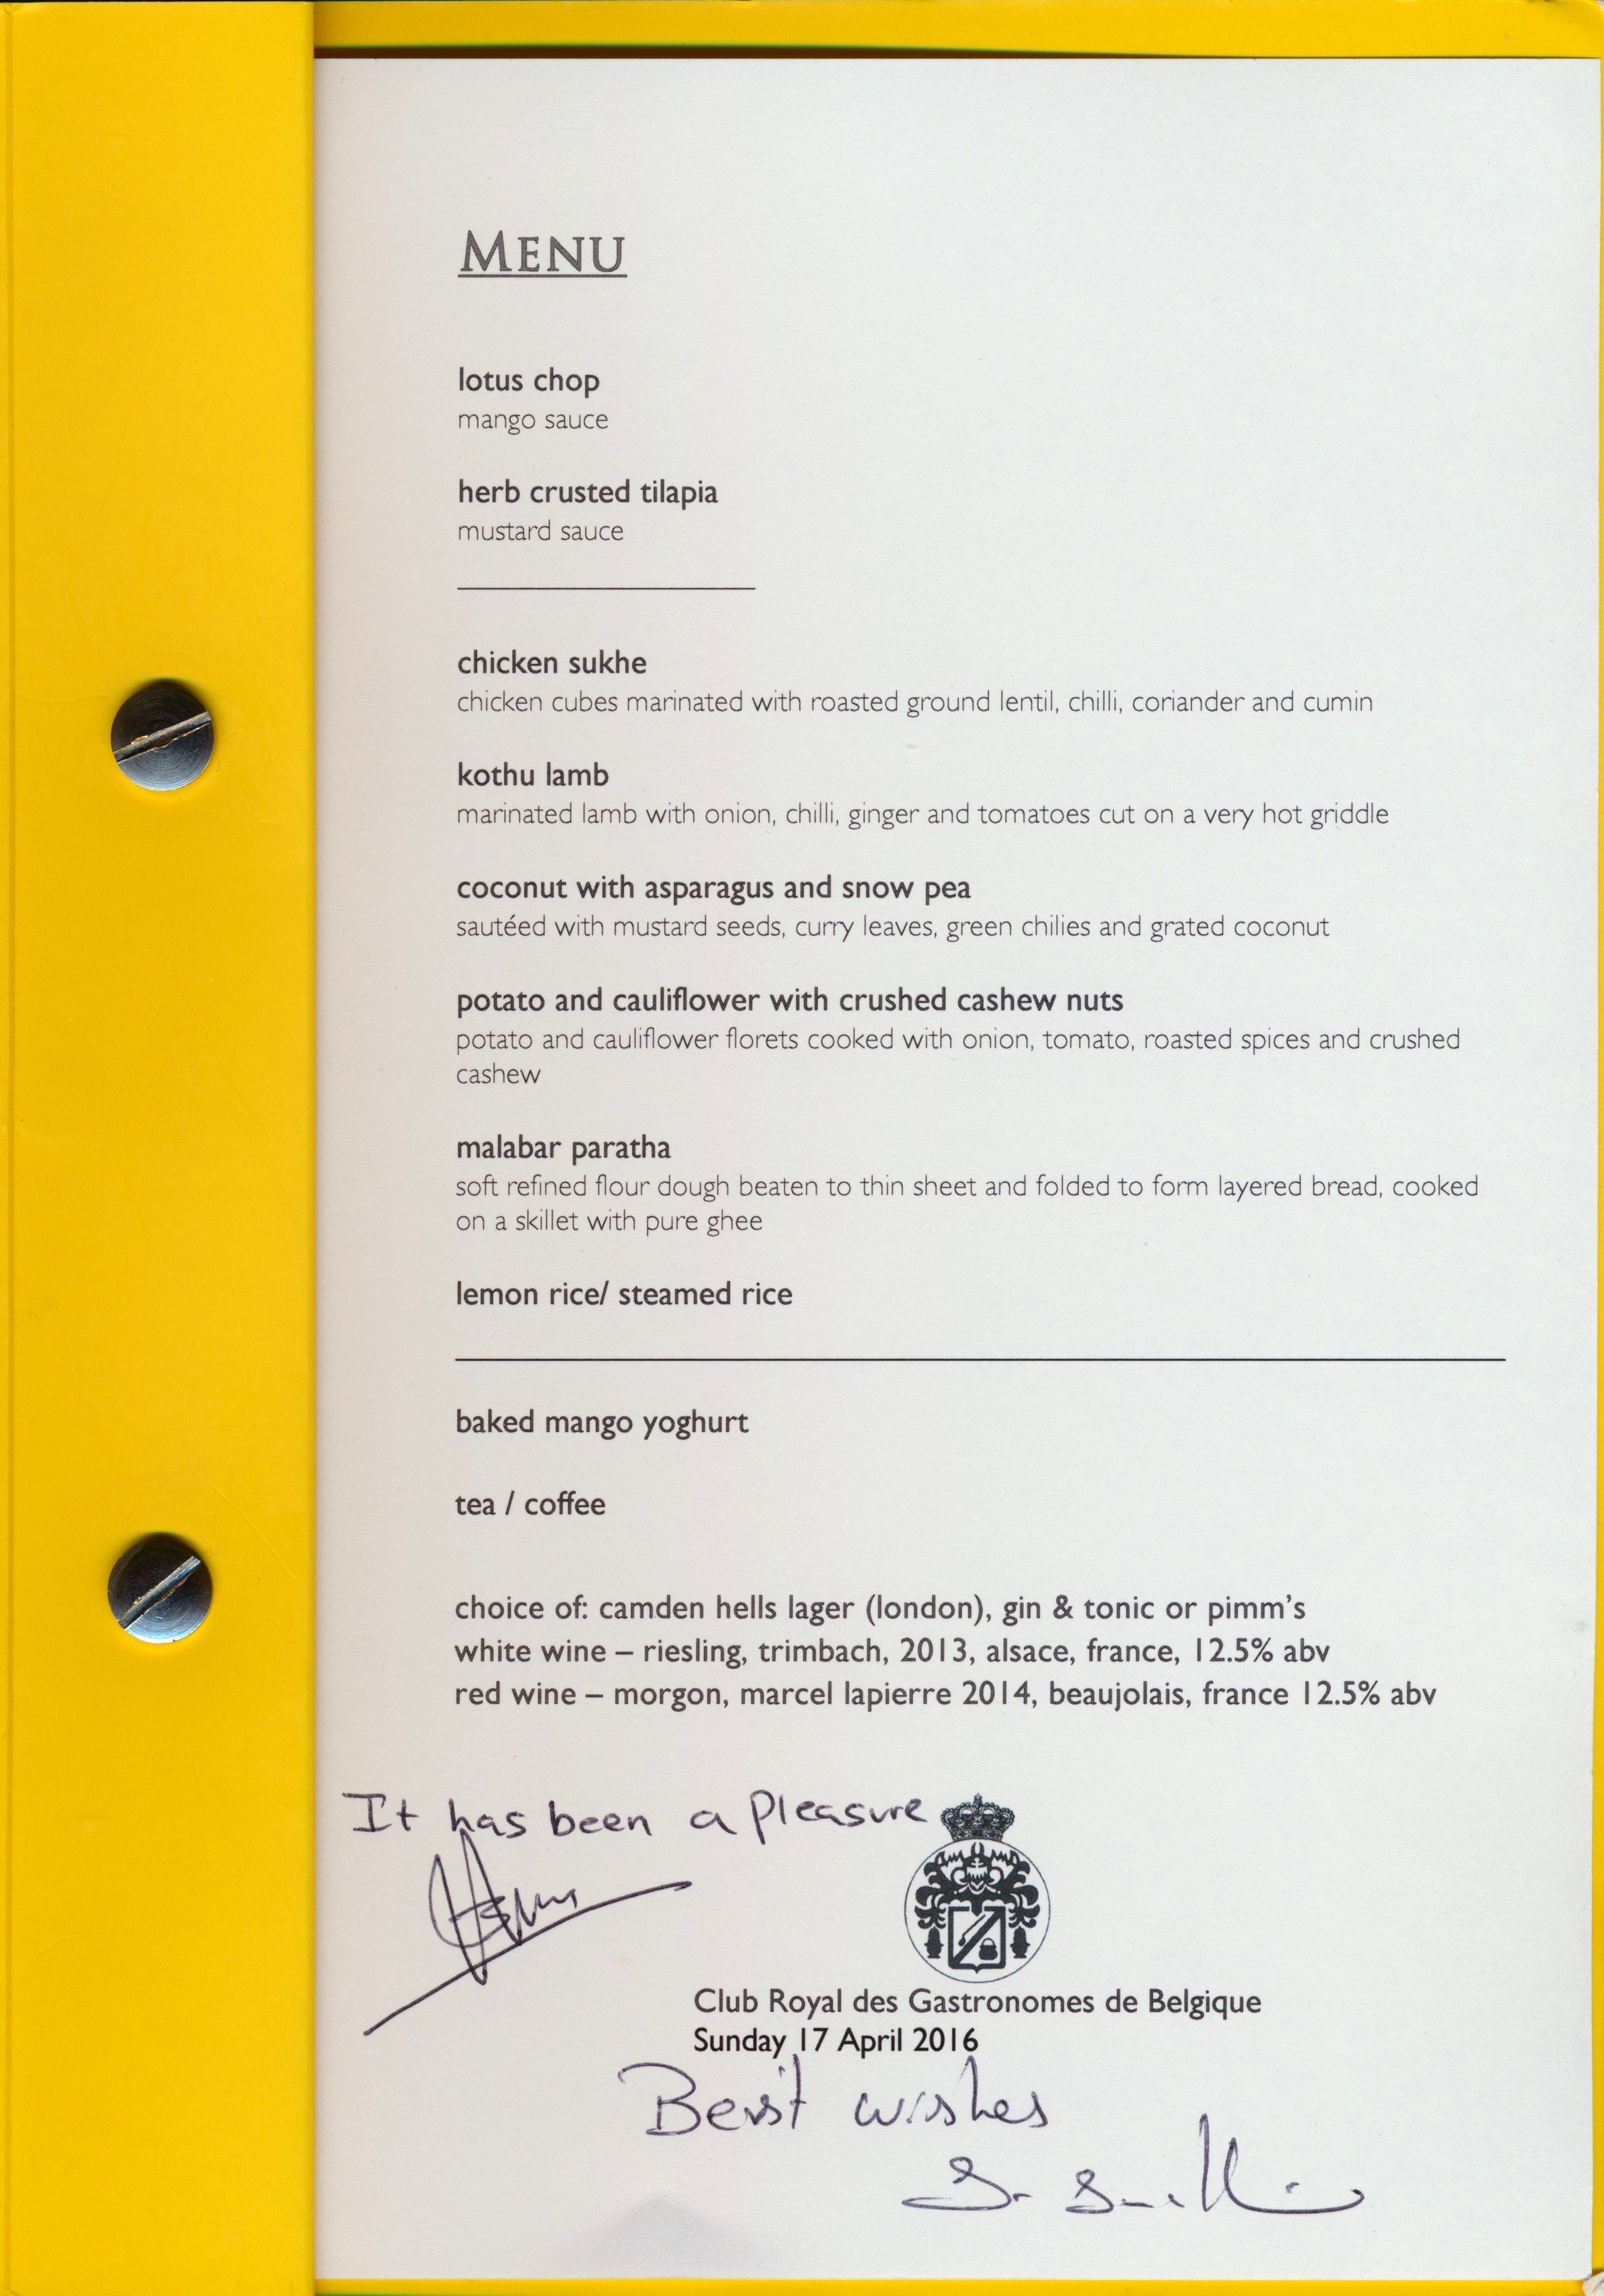 MENU
lotus chop
mango sauce
herb crusted tilapia
mustard sauce
chicken sukhe
chicken cubes marinated with roasted ground lentil, chilli, coriander and cumin
kothu lamb
marinated lamb with onion, chilli, ginger and tomatoes cut on a very hot griddle
coconut with asparagus and snow pea
sautéed with mustard seeds, curry leaves, green chilies and grated coconut
potato and cauliflower with crushed cashew nuts
potato and cauliflower florets cooked with onion, tomato, roasted spices and crushed
cashew
malabar paratha
soft refined flour dough beaten to thin sheet and folded to form layered bread, cooked
on a skillet with pure ghee
lemon rice/ steamed rice
baked mango yoghurt
tea / coffee
choice of: camden hells lager (london), gin & tonic or pimm's
white wine – riesling, trimbach, 2013, alsace, france, 12.5% abv
red wine – morgon, marcel lapierre 2014, beaujolais, france 12.5% abv
It has been a pleasure
Club Royal des Gastronomes de Belgique
Sunday 17 April 2016
Best wishes